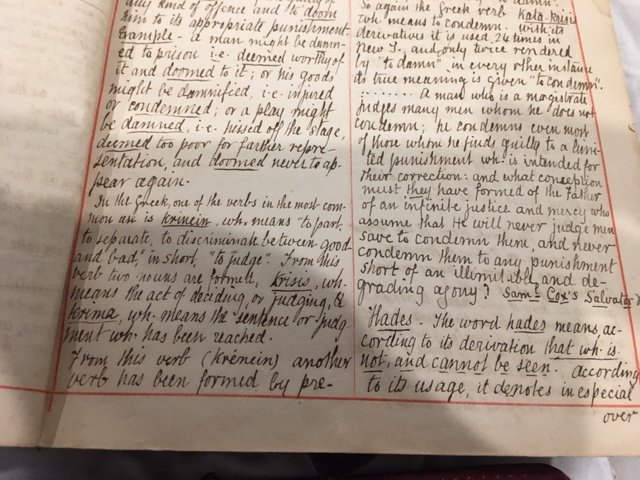 any kind of offence and to doom
him to its appropriate punishment.
Example - a man might be damn-
ed to prison i.e. deemed worthy of
it and doomed to it; or his goods
might be damnified, i.e. injured
or condemned; or a play might
be damned, i.e. hissed off the stage,
deemed too poor for farther repre-
sentation, and doomed never to ap-
pear again.
In the Greek, one of the verbs in the most com-
mon use is krinein, wh. means "to part,
to separate, to discriminate between good
and bad," in short, "to judge". From this
verb two nouns are formed, krisis, wh.
means the act of deciding, or judging, &
krima, wh. means the sentence or judg
ment wh. has been reached.
From this verb (krēnein) another
verb has been formed by pre-
So again the Greek verb Kata-krisis
wh. means to condemn. with its
derivatives it is used 24 times in
New T., and only twice rendered
by "to damn", in every other instance
its true meaning is given "to condemn".
........ A man who is a magistrate
judges many men whom he does not
condemn; he condemns even most
of those whom he finds guilty to a limi-
ted punishment wh. is intended for
their correction: and what conception
must they have formed of the Father
of an infinite justice and mercy who
assume that He will never judge men
save to condemn them, and never
condemn them to any punishment
short of an illimitable and de-
grading agony? Saml. Cox's Salvator
Hades - The word hades means ac-
cording to its derivation that wh. is
not, and cannot be seen. According
to its usage, it denotes in especial
over